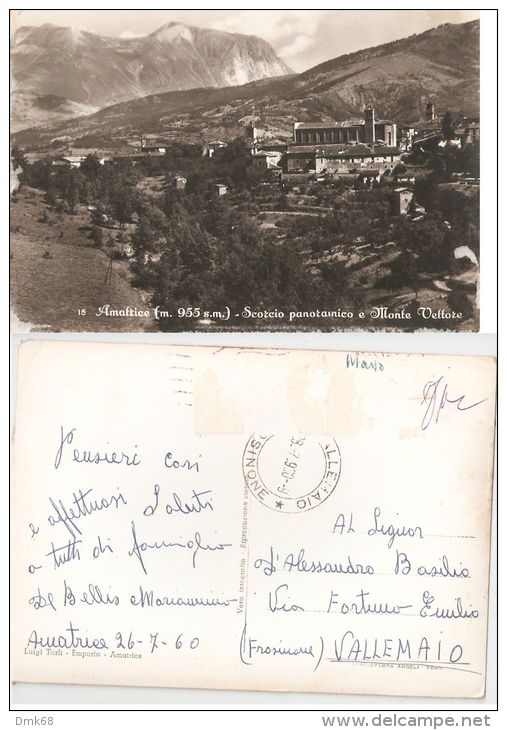 15 Amatrice (m. 955 s.m.) - Scorcio panoramico e Monte Vettore
Mano
Pensieri cari
e affettuosi Saluti
a tutti di famiglia
De Bellis Mariannina
Amatrice 26-7-60
Luigi Turli - Emporio - Amatrice
Vera fotografia - Riproduzione
VALLEMAIO
FROSINONE
Al Signor
D'Alessandro Basilio
Via Fortuno Emilio
(Frosinone) VALLEMAIO
STAMPA ANGELI - TERNI
Dmk68
www.delcampe.net